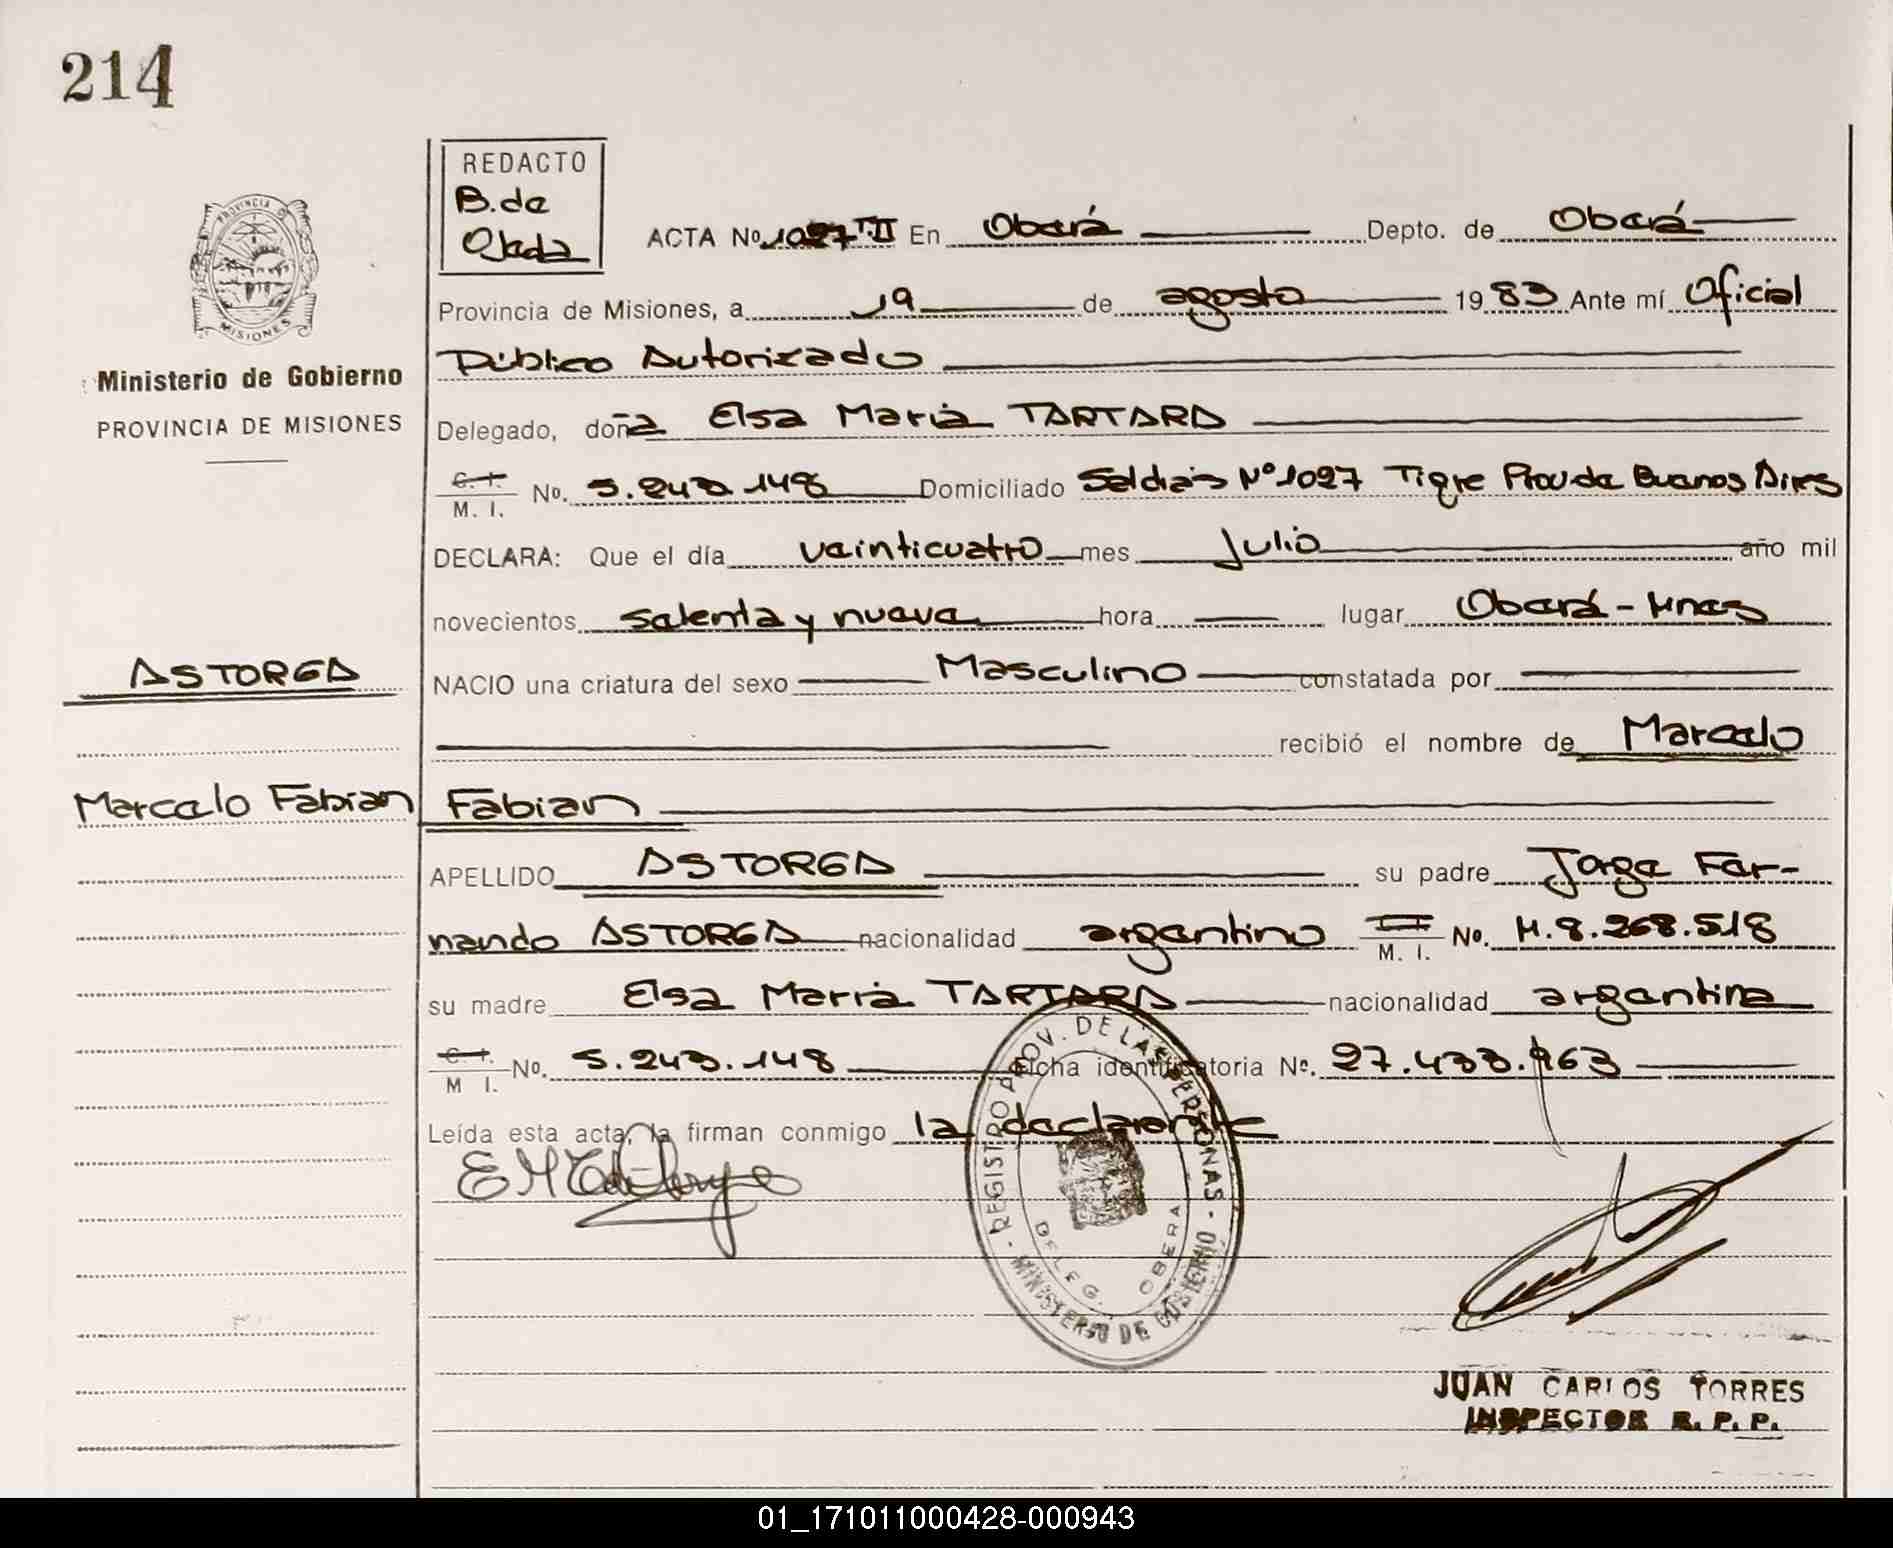 214
REDACTO
B. de
Ojeda
ACTA No. 1027 T II En Oberá Depto. de Oberá
Provincia de Misiones, a 19 de agosto 1983 Ante mí Oficial
Público Autorizado
PROVINCIA DE
MISIONES
Ministerio de Gobierno
PROVINCIA DE MISIONES
Delegado, doña Elsa María TARTARA
C. I.
M. I. No. 5.243.148 Domiciliado Saldías Nº 1027 Tigre Prov de Buenos Aires
DECLARA: Que el día veinticuatro mes Julio año mil
novecientos setenta y nueve hora lugar Oberá - Mnes
ASTORGA
NACIO una criatura del sexo Masculino constatada por
recibió el nombre de Marcelo
Marcelo Fabian
Fabian
APELLIDO ASTORGA su padre Jorge Fer-
nando ASTORGA nacionalidad argentino M. I. No. M. 8.268.518
su madre Elsa María TARTARA nacionalidad argentina
C. I.
M I. No. 5.243.148 Ficha identificatoria No. 27.433.963
Leída esta acta, la firman conmigo la declarante
REGISTRO PROV. DE LAS PERSONAS - MINISTERIO DE GOBIERNO -
DELEG. OBERA
JUAN CARLOS TORRES
INSPECTOR R. P. P.
01_171011000428-000943